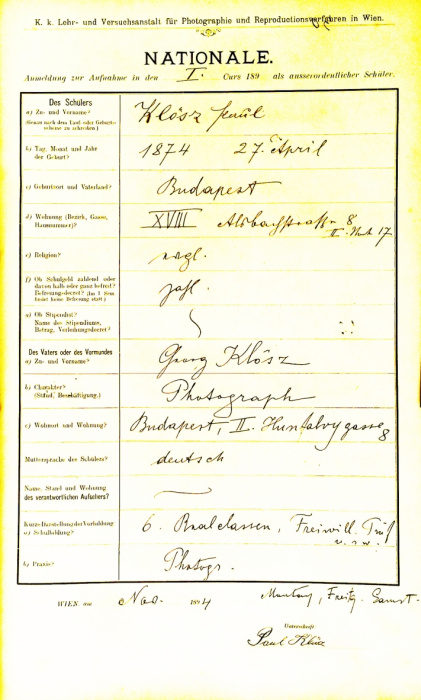 K. k. Lehr- und Versuchsanstalt für Photographie und Reproductionsverfahren in Wien.
NATIONALE.
Anmeldung zur Aufnahme in den I. Curs 189 als ausserordentlicher Schüler.
Des Schülers
a) Zu- und Vorname?
(Genau nach dem Tauf- oder Geburtsscheine zu schreiben)
Klösz Paul
b) Tag, Monat und Jahr
der Geburt?
1874 27. April
c) Geburtsort und Vaterland?
Budapest
d) Wohnung (Bezirk, Gasse,
Hausnummer)?
XVIII 8
II. 17
e) Religion?
f) Ob Schulgeld zahlend oder
davon halb oder ganz befreit?
Befreiungs-decret? (Im I. Sem.
findet keine Befreiung statt)
zahl.
g) Ob Stipendist?
Name des Stipendiums,
Betrag, Verleihungsdecret?
Des Vaters oder des Vormundes
a) Zu- und Vorname?
Georg Klösz
b) Charakter?
(Stand, Beschäftigung.)
Photograph
c) Wohnort und Wohnung?
Budapest, II. Hunfalvygasse
8
Muttersprache des Schülers?
deutsch
Name, Stand und Wohnung
des verantwortlichen Aufsehers?
Kurze Darstellung der Vorbildung
a) Schulbildung?
6. Realclassen, Freiwill. Prüf
u. s. w.
b) Praxis?
Photogr.
WIEN, am Nov. 1894
Montag, Freitg. Samst.
Unterschrift
Paul Klösz